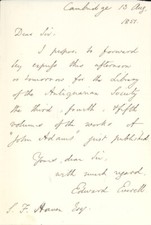 Cambridge 13 Aug
1851.
Dear Sir.
I propose to forward
by express this afternoon
or tomorrow for the Library
of the Antiquarian Society
the third, fourth, & fifth
volumes of the works of
"John Adams" just published.
Yours, dear Sir,
with much regard,
Edward Everett
S. F. Haven Esq.